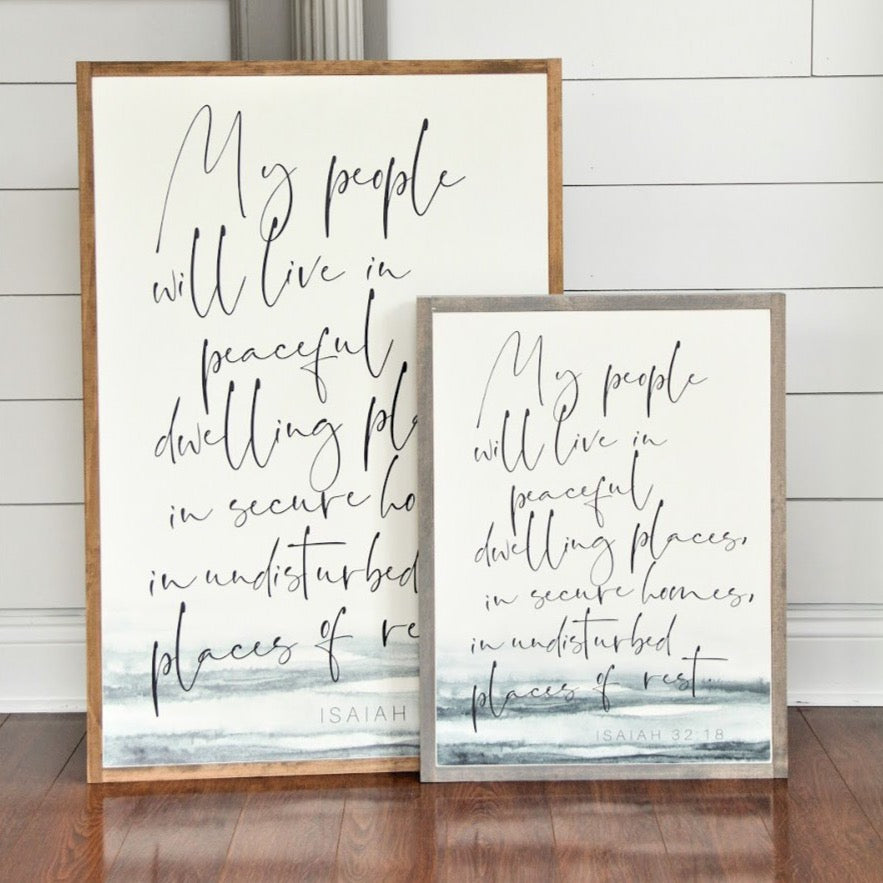 My people
will live in
peaceful
dwelling pla
in secure ho
in undisturbed
places of re
ISAIAH
My people
will live in
peaceful
dwelling places,
in secure homes,
in undisturbed
places of rest...
ISAIAH 32:18